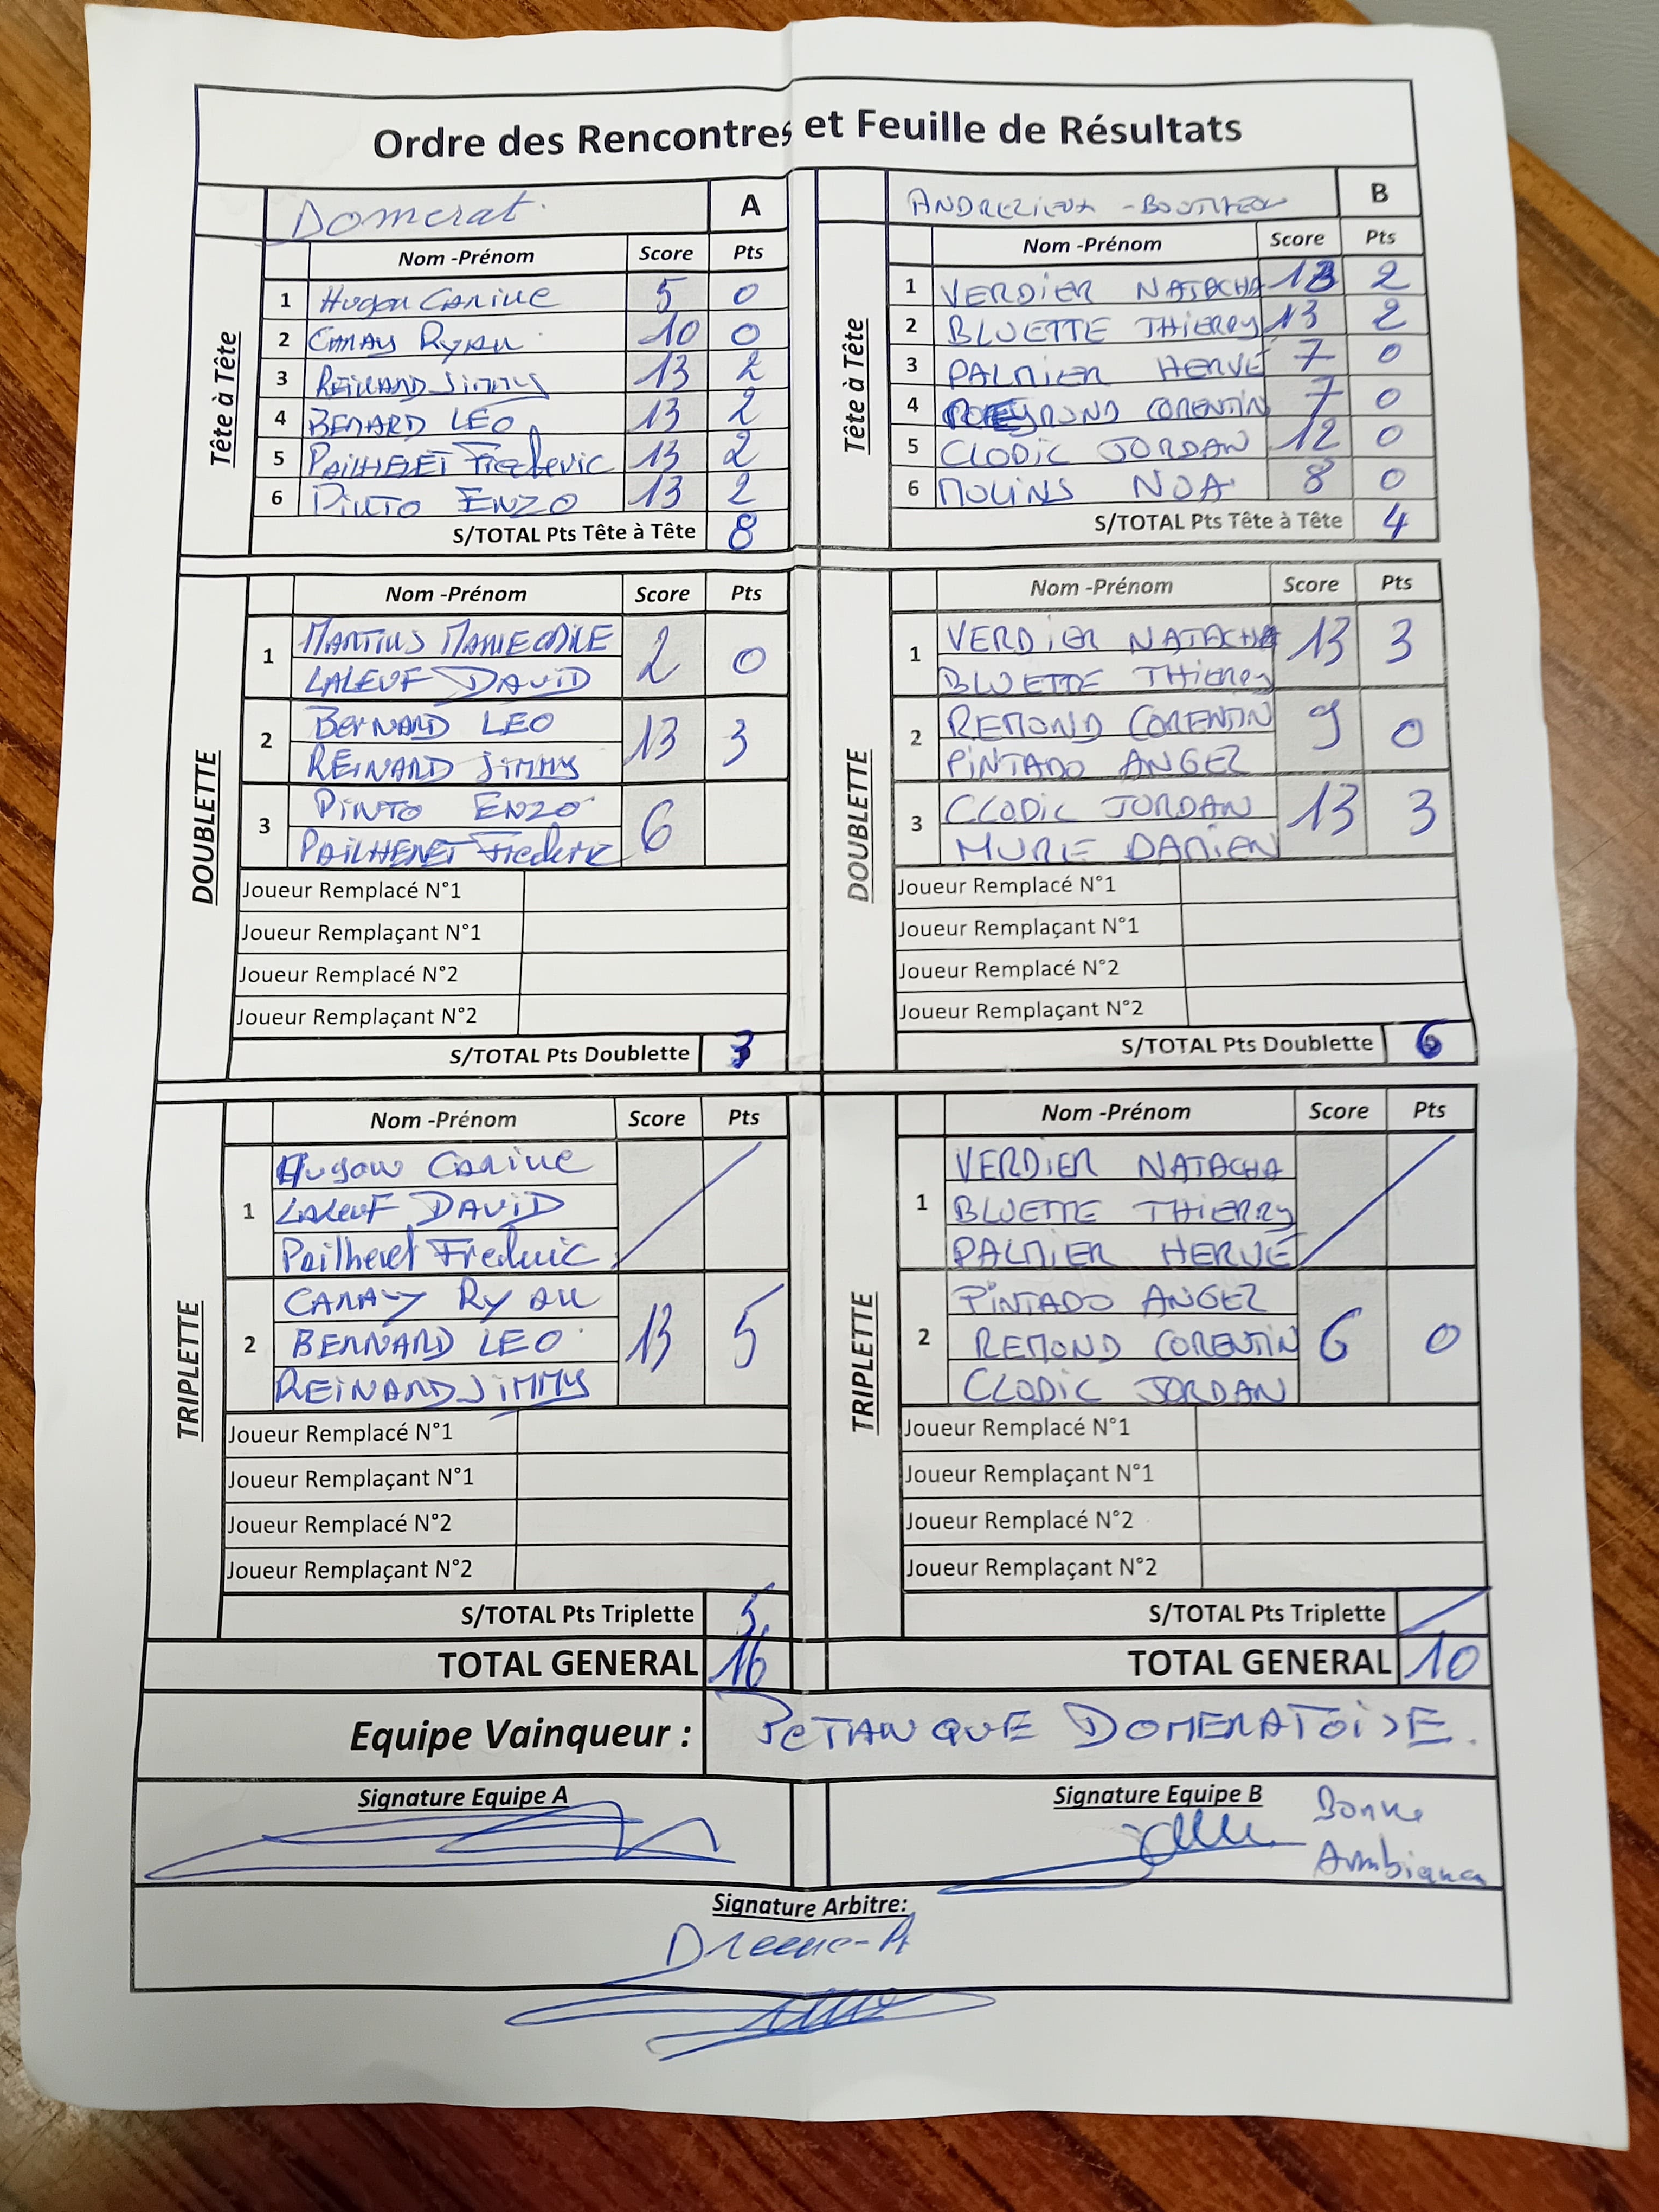 Ordre des Rencontres et Feuille de Résultats
Domerat A
Tête à Tête
Nom -Prénom Score Pts
1 Hugon Carine 5 0
2 CANAY Ryan 10 0
3 REINARD JIMMY 13 2
4 BENARD LEO 13 2
5 PAILHERET Frederic 13 2
6 PINTO ENZO 13 2
S/TOTAL Pts Tête à Tête 8
ANDREZIEUX - BOUTHEON B
Tête à Tête
Nom -Prénom Score Pts
1 VERDIER NATACHA 13 2
2 BLUETTE THIERRY 13 2
3 PALMIER HERVE 7 0
4 CORENTIN 7 0
5 CLODIC JORDAN 12 0
6 MOLINS NOA 8 0
S/TOTAL Pts Tête à Tête 4
DOUBLETTE
Nom -Prénom Score Pts
1 MARTINS MARIE ODILE 2 0
LALEUF DAVID
2 BERNARD LEO 13 3
REINARD JIMMY
3 PINTO ENZO 6
PAILHERET Frederic
Joueur Remplacé N°1
Joueur Remplaçant N°1
Joueur Remplacé N°2
Joueur Remplaçant N°2
S/TOTAL Pts Doublette 3
DOUBLETTE
Nom -Prénom Score Pts
1 VERDIER NATACHA 13 3
BLUETTE THIERRY
2 REMOND CORENTIN 9 0
PINTADO ANGEL
3 CLODIC JORDAN 13 3
MURE DAMIEN
Joueur Remplacé N°1
Joueur Remplaçant N°1
Joueur Remplacé N°2
Joueur Remplaçant N°2
S/TOTAL Pts Doublette 6
TRIPLETTE
Nom -Prénom Score Pts
1 Hugon Carine
LALEUF DAVID
Pailheret Frederic
2 CANAY Ryan 13 5
BERNARD LEO
REINARD JIMMY
Joueur Remplacé N°1
Joueur Remplaçant N°1
Joueur Remplacé N°2
Joueur Remplaçant N°2
S/TOTAL Pts Triplette 5
TOTAL GENERAL 16
TRIPLETTE
Nom -Prénom Score Pts
1 VERDIER NATACHA
BLUETTE THIERRY
PALMIER HERVE
2 PINTADO ANGEL 6 0
REMOND CORENTIN
CLODIC JORDAN
Joueur Remplacé N°1
Joueur Remplaçant N°1
Joueur Remplacé N°2
Joueur Remplaçant N°2
S/TOTAL Pts Triplette
TOTAL GENERAL 10
Equipe Vainqueur : PETANQUE DOMERATOISE.
Signature Equipe A
Signature Equipe B
Bonne
Ambiance
Signature Arbitre: